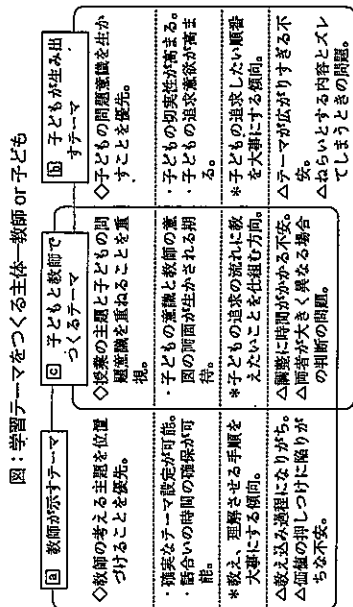 図：学習テーマをつくる主体―教師 or 子ども
a 教師が示すテーマ
◇教師の考える主題を位置
づけることを優先。
・確実なテーマ設定が可能。
・話合いの時間の確保が可
能。
＊教え、理解させる手順を
大事にする傾向。
△教え込み過程になりがち。
△価値の押しつけに陥りが
ちな不安。
c 子どもと教師で
つくるテーマ
◇授業の主題と子どもの問
題意識を重ねることを重
視。
・子どもの意識と教師の意
図の両面が生かされる期
待。
＊子どもの追求の流れに教
えたいことを仕組む方向。
△調整に時間がかかる不安。
△両者が大きく異なる場合
の判断の問題。
b 子どもが生み出
すテーマ
◇子どもの問題意識を生か
すことを優先。
・子どもの切実性が高まる。
・子どもの追求意欲が高ま
る。
＊子どもの追求したい順番
を大事にする傾向。
△テーマが広がりすぎる不
安。
△ねらいとする内容とズレ
てしまうときの問題。